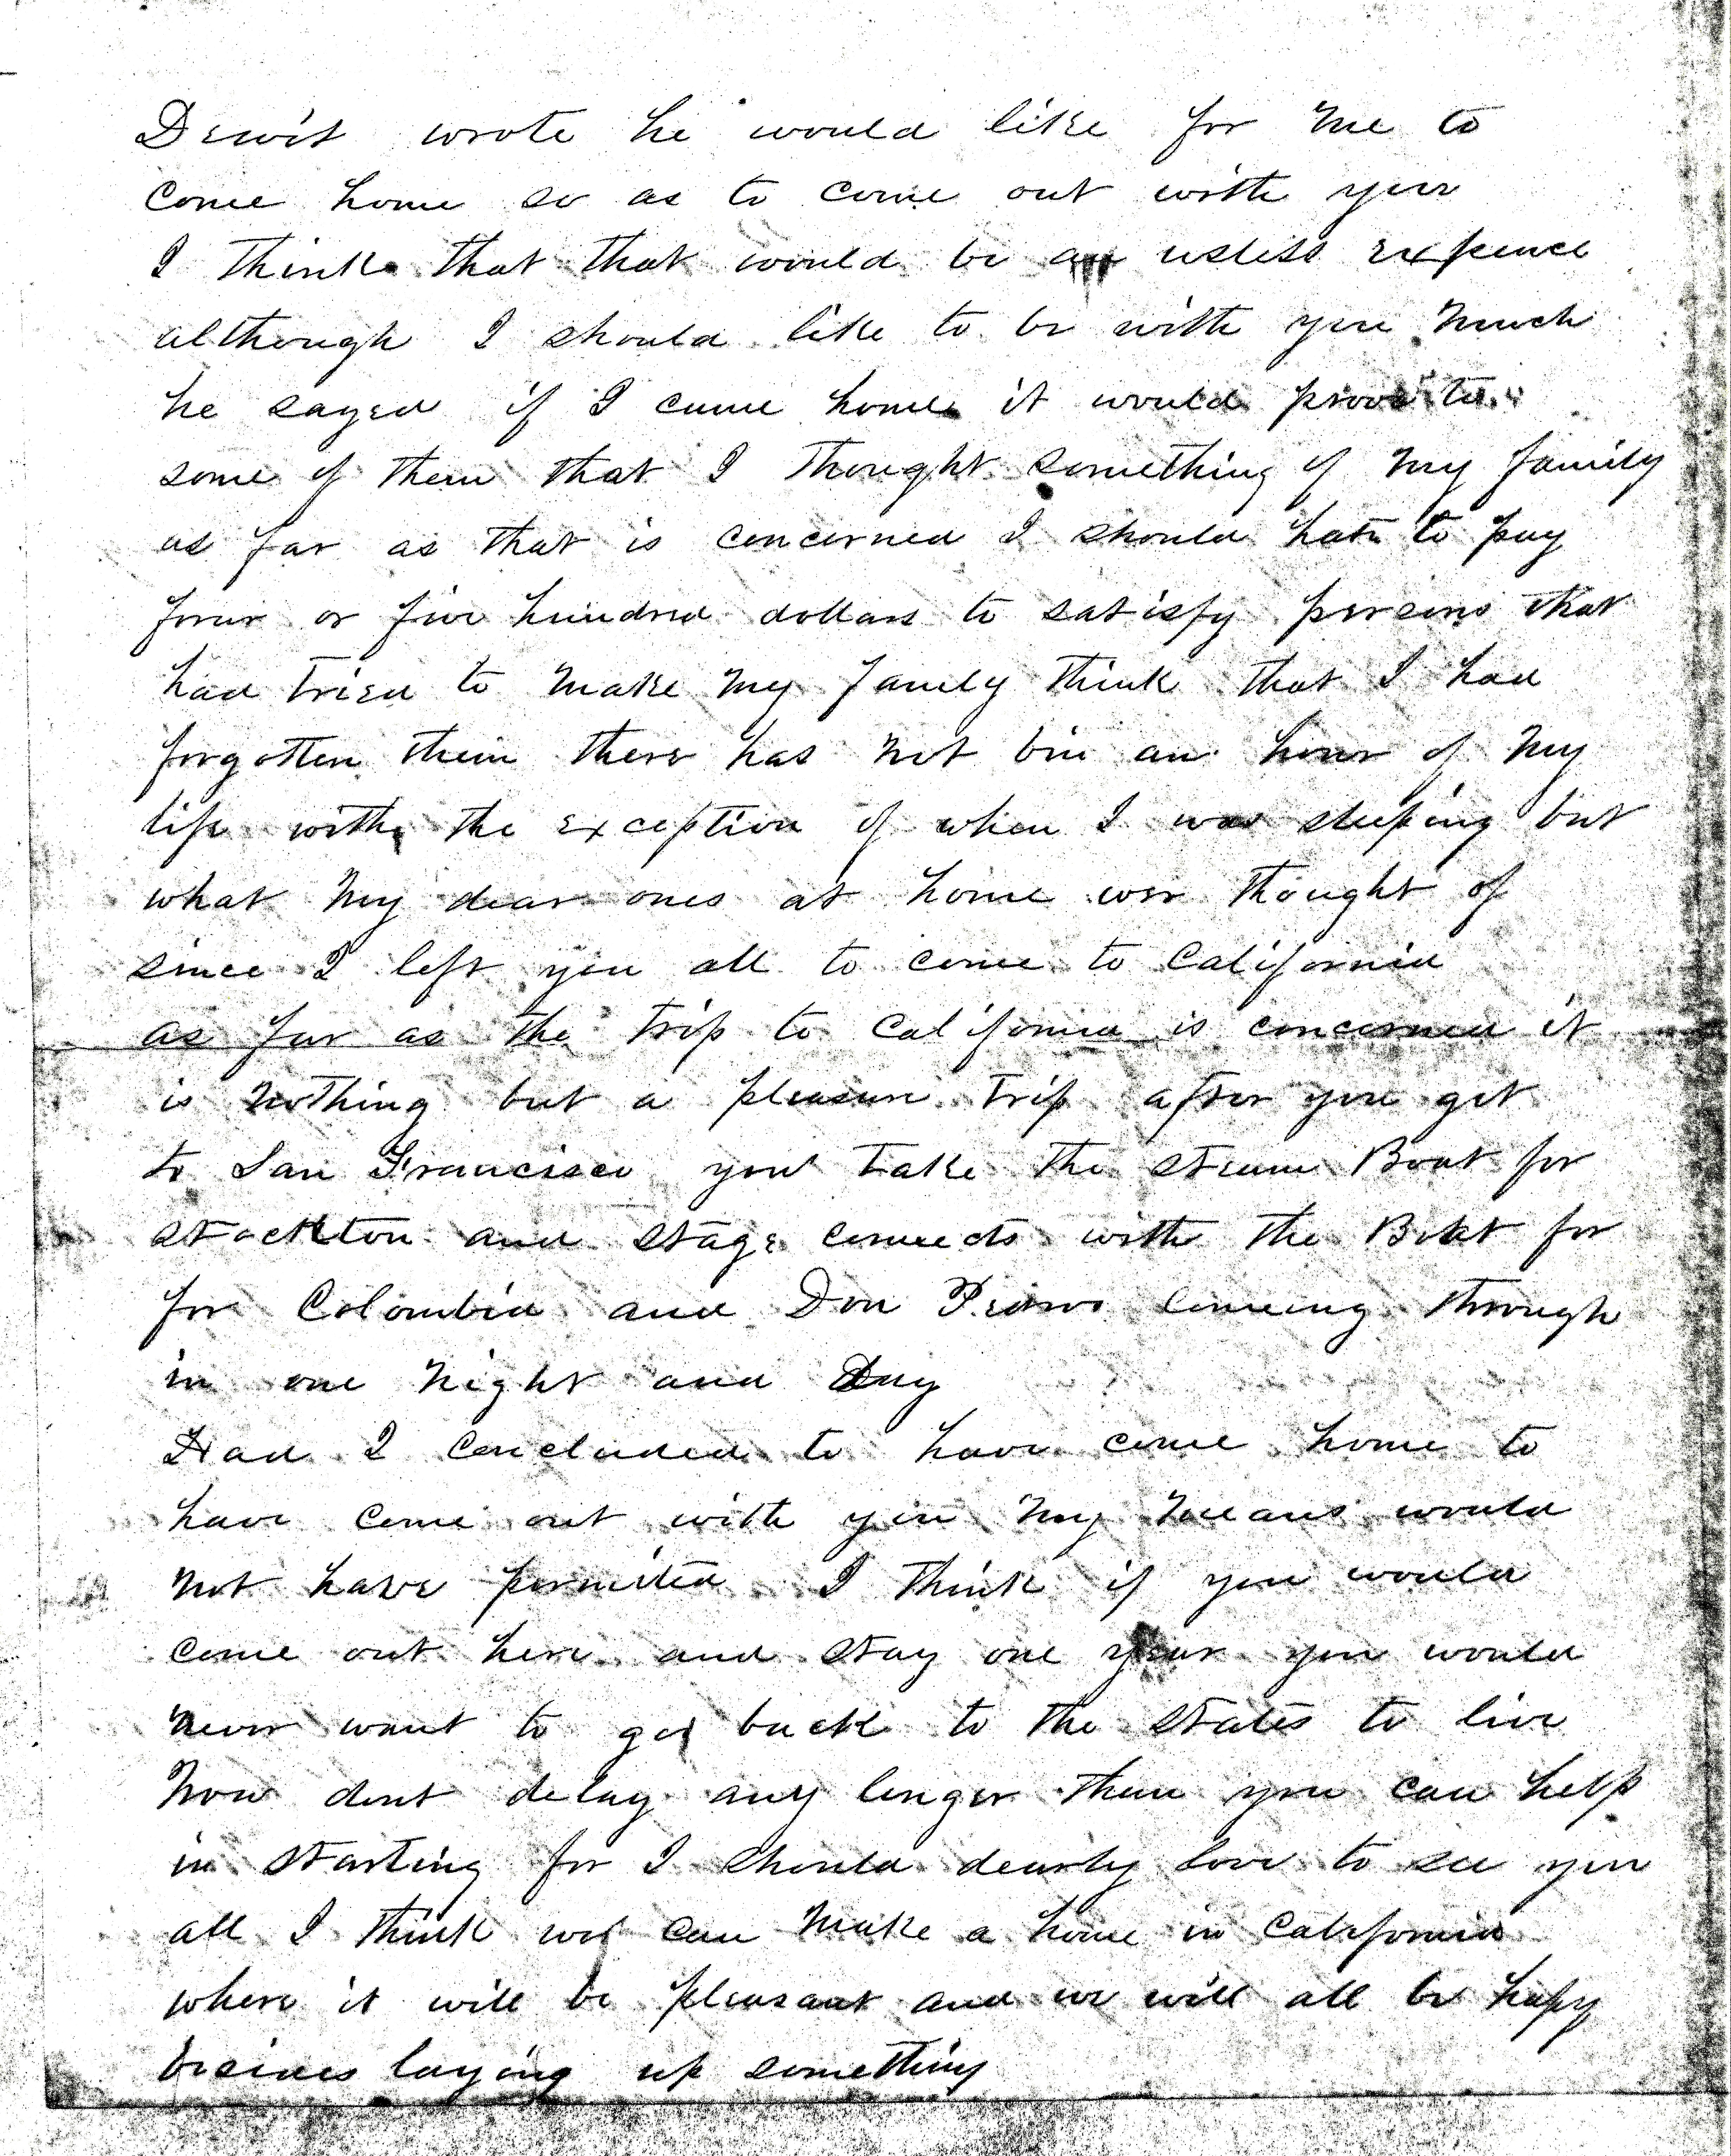 Dewit wrote he would like for me to
come home so as to come out with you
I think that that would be an usless expence
although I should like to be with you much
he sayed if I came home it would prove to
some of them that I thought something of my family
as far as that is concerned I should hate to pay
four or five hundred dollars to satisfy persons that
had tried to make my family think that I had
forgotten them there has not bin an hour of my
life with the exception of when I was sleeping but
what my dear ones at home wer thought of
since I left you all to come to California
as far as the trip to California is concerned it
is nothing but a pleasure trip after you get
to San Francisco you take the steam Boat for
stockton and stage connects with the Boat for
for Colombia and Don Pedros coming through
in one night and day
Had I concluded to have come home to
have come out with you my means would
not have permited I think if you would
come out here and stay one year you would
never want to go back to the states to live
now dont delay any longer than you can help
in starting for I should dearly love to see you
all I think we can make a home in California
where it will be pleasant and we will all be hapy
besides laying up something